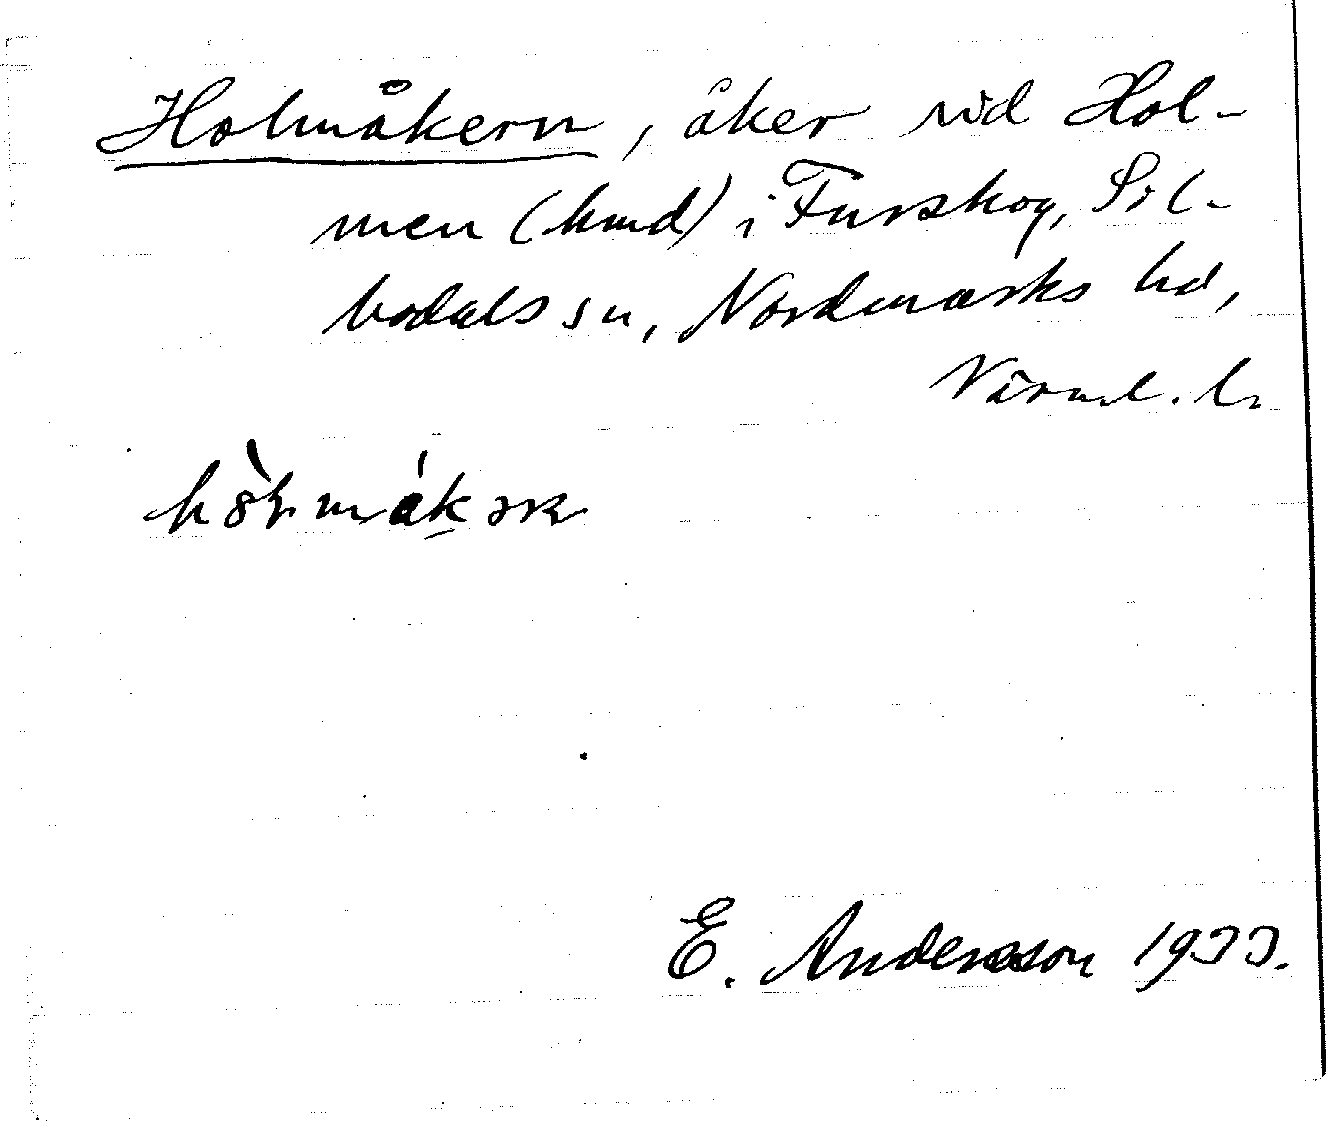 Holmåkern, åker vid Hol-
men (hmd) i Furskog, Sil-
bodals sn, Nordmarks hd,
Värml. l.
E. Andersson 1933.